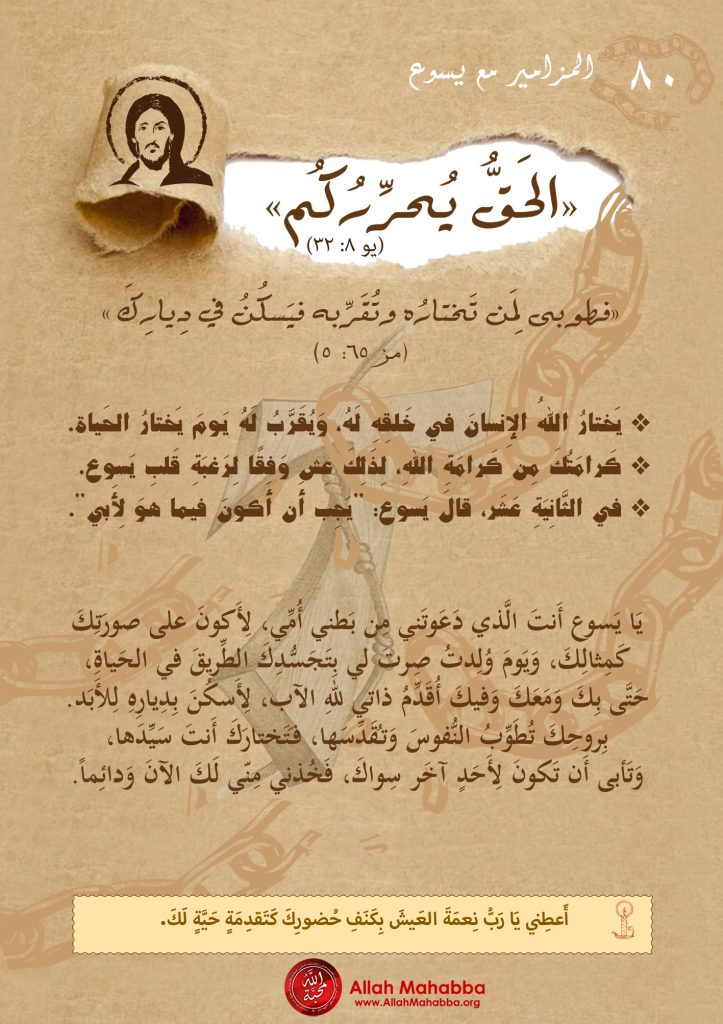 ٨٠ المزامير مع يسوع
«الحَقُّ يُحرِّرُكُم»
(يو ٨: ٣٢)
«فطوبى لِمَن تَختارُه وتُقَرِّبه فيَسكُنُ في دِيارِكَ»
(مز ٦٥: ٥)
❖ يَختارُ اللهُ الإنسانَ في خَلقِهِ لَهُ، وَيُقَرَّبُ لَهُ يَومَ يَختارُ الحَياة.
❖ كَرامَتُكَ مِن كَرامَةِ الله، لِذَلكَ عِش وَفقًا لرَغبَةِ قَلبِ يَسوع.
❖ في الثَّانِيَةِ عَشَر، قالَ يَسوع: "يَجِب أَن أَكونَ فيما هوَ لِأَبي".
يَا يَسوع أَنتَ الَّذي دَعَوتَني مِن بَطني أُمِّي، لِأَكونَ على صورَتِكَ
كَمِثالِكَ، وَيَومَ وُلِدتُ صِرتَ لي بِتَجَسُّدِكَ الطِّريقَ في الحَياةِ،
حَتَّى بِكَ وَمَعَكَ وَفيكَ أُقَدِّمُ ذاتي للهِ الآب، لِأَسكُنَ بِدِيارِهِ لِلأَبَد.
بِروحِكَ تُطَوِّبُ النُّفوسَ وَتُقَدِّسَها، فَتَختارَكَ أَنتَ سَيِّدَها،
وَتَأبى أَن تَكونَ لِأَحَدٍ آخَر سِواكَ، فَخُذني مِنّي لَكَ الآنَ وَدائِماً.
أَعطِني يَا رَبُّ نِعمَةَ العَيشَ بِكَنَفِ حُضورِكَ كَتَقدِمَةٍ حَيَّةٍ لَكَ.
الله محبة
Allah Mahabba
www.AllahMahabba.org